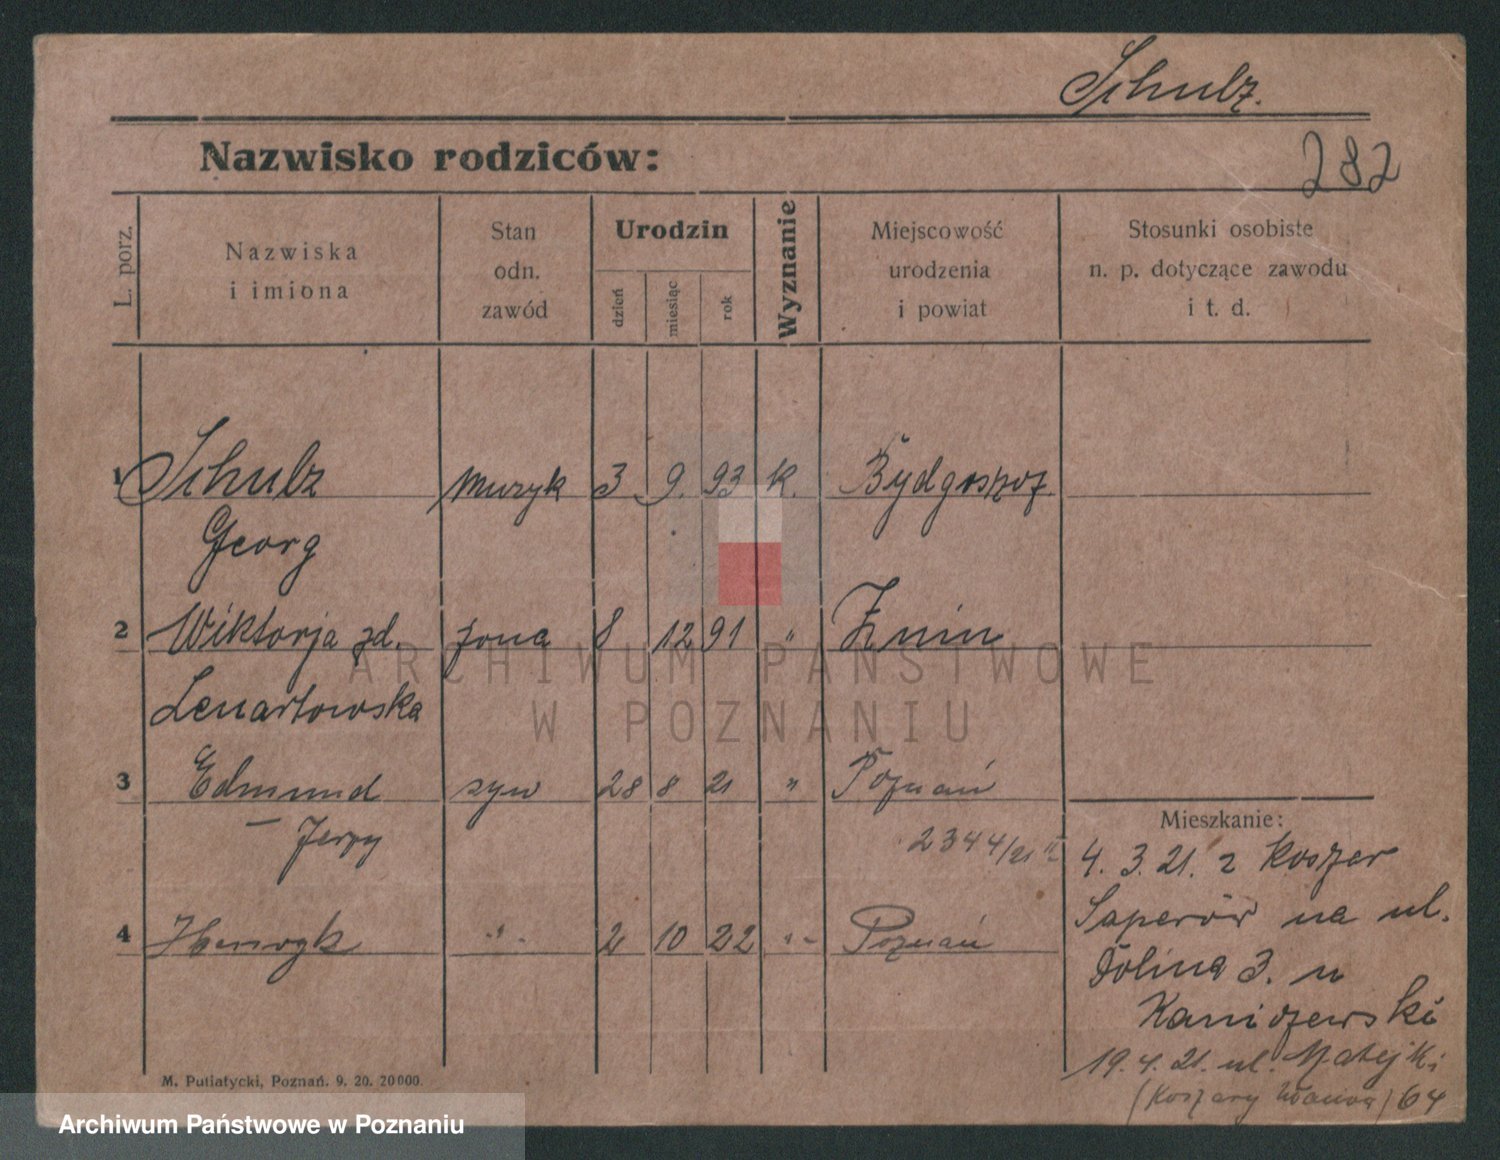 Schulz.
Nazwisko rodziców:
282
L. porz.
Nazwiska
i imiona
Stan
odn.
zawód
Urodzin
dzień
miesiąc
rok
Wyznanie
Miejscowość
urodzenia
i powiat
Stosunki osobiste
n. p. dotyczące zawodu
i t. d.
1 Schulz muzyk 3 9. 93 k. Bydgoszcz
Georg
2 Wiktorja zd. żona 8 12 91 " Żnin
Lenartowska
3 Edmund syn 28 8 21 " Poznań
— Jerzy
2344/21 II
4 Henryk " 2 10 22 " Poznań
Mieszkanie:
4. 3. 21. z Koszar
Saperów na ul.
Dolina 3. u
Kaniszewski
19. 4. 21. ul. Matejki
(Koszary ) 64
M. Putiatycki, Poznań. 9. 20. 20000.
ARCHIWUM PAŃSTWOWE
W POZNANIU
Archiwum Państwowe w Poznaniu